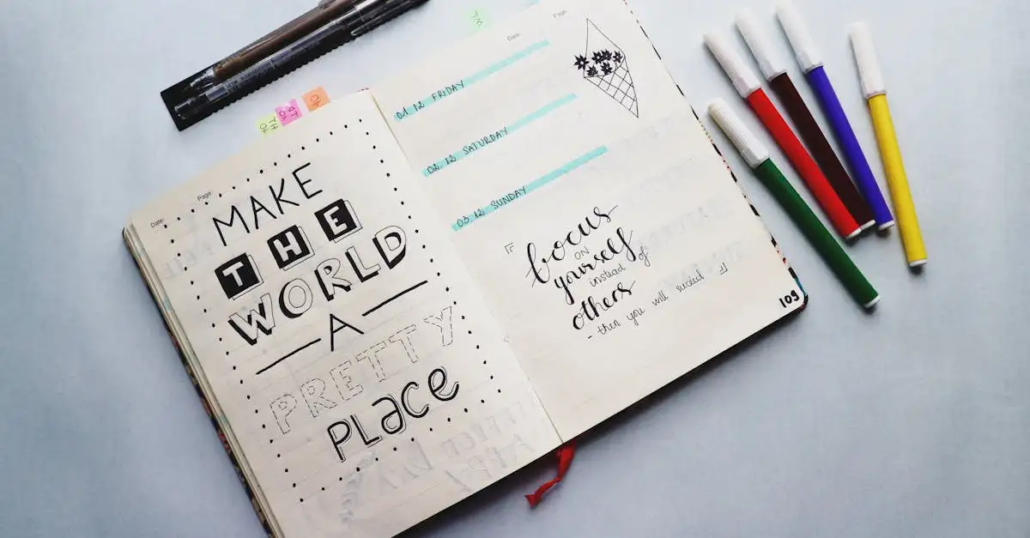 Date:
Page:
MAKE
THE
WORLD
A
PRETTY
PLACe
Date:
Page:
01.12 FRIDAY
02.12 SATURDAY
03.12 SUNDAY
focus
on
yourself
instead of
others
- then you will succed
109